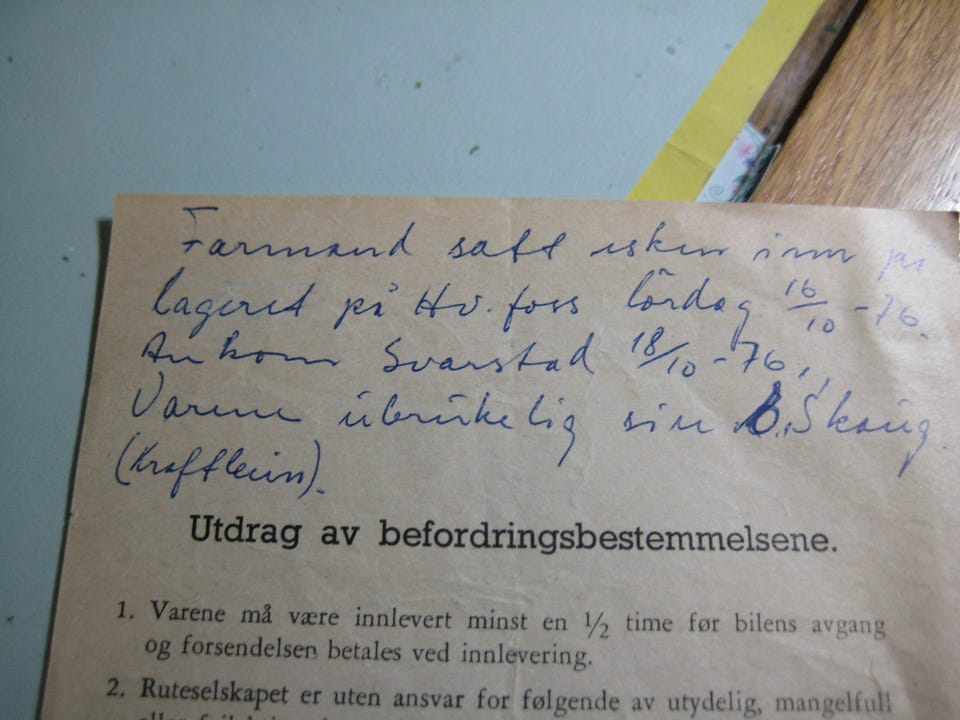 Farmand satt esken inn på
lageret på Hv. foss lördag 16/10 - 76.
Ankom Svarstad 18/10 - 76.,
Varene ubrukelig B. Skaug.
Utdrag av befordringsbestemmelsene.
1. Varene må være innlevert minst en 1/2 time før bilens avgang
og forsendelsen betales ved innlevering.
2. Ruteselskapet er uten ansvar for følgende av utydelig, mangelfull